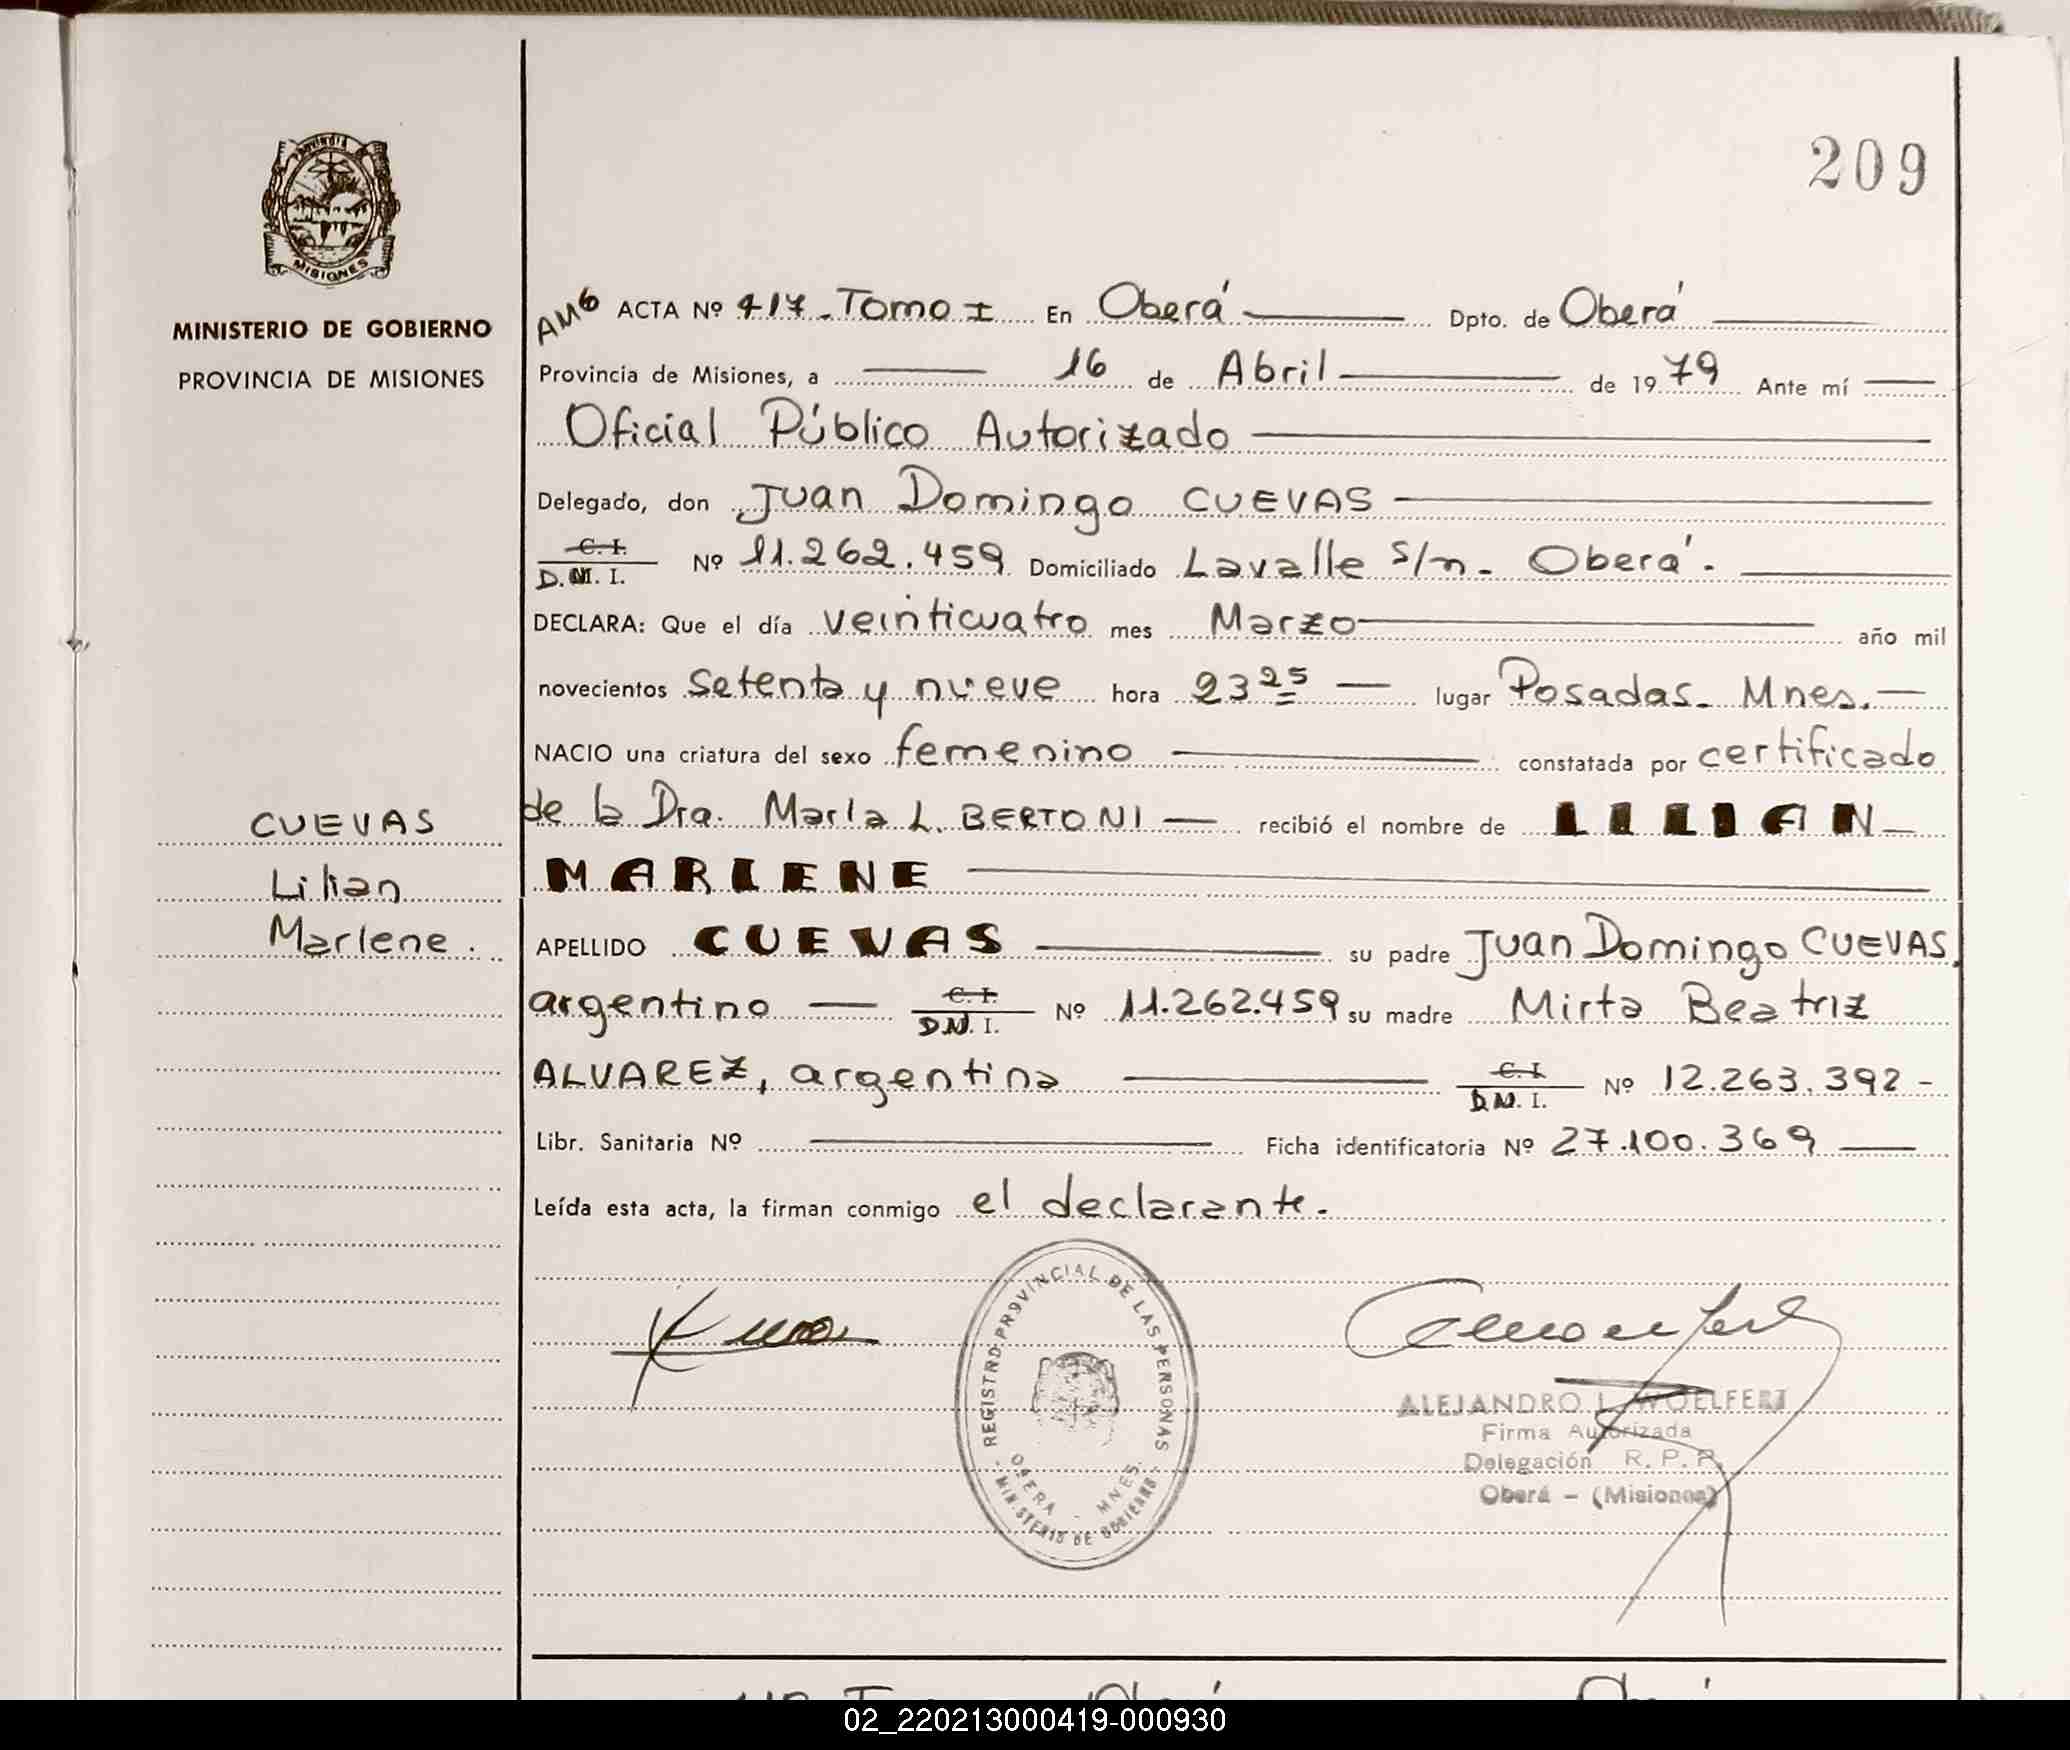 209
PROVINCIA DE
MISIONES
MINISTERIO DE GOBIERNO
PROVINCIA DE MISIONES
AMG ACTA Nº 417 - Tomo I En Oberá Dpto. de Oberá
Provincia de Misiones, a 16 de Abril de 1979 Ante mí
Oficial Público Autorizado
Delegado, don Juan Domingo CUEVAS
C. I.
D.N.I. Nº 11.262.459 Domiciliado Lavalle s/n - Oberá.
DECLARA: Que el día veinticuatro mes Marzo año mil
novecientos setenta y nueve hora 23 25 lugar Posadas - Mnes.
NACIO una criatura del sexo femenino constatada por certificado
de la Dra. María L. BERTONI recibió el nombre de LILIAN
MARLENE
APELLIDO CUEVAS su padre Juan Domingo CUEVAS,
argentino C. I. D.N.I. Nº 11.262.459 su madre Mirta Beatriz
ALVAREZ, argentina C. I. D.N.I. Nº 12.263.392 -
Libr. Sanitaria Nº Ficha identificatoria Nº 27.100.369
Leída esta acta, la firman conmigo el declarante.
CUEVAS
Lilian
Marlene.
REGISTRO PROVINCIAL DE LAS PERSONAS
OBERA - MNES.
- MINISTERIO DE GOBIERNO -
ALEJANDRO L. WOELFERT
Firma Autorizada
Delegación R. P. P.
Oberá - (Misiones)
02_220213000419-000930